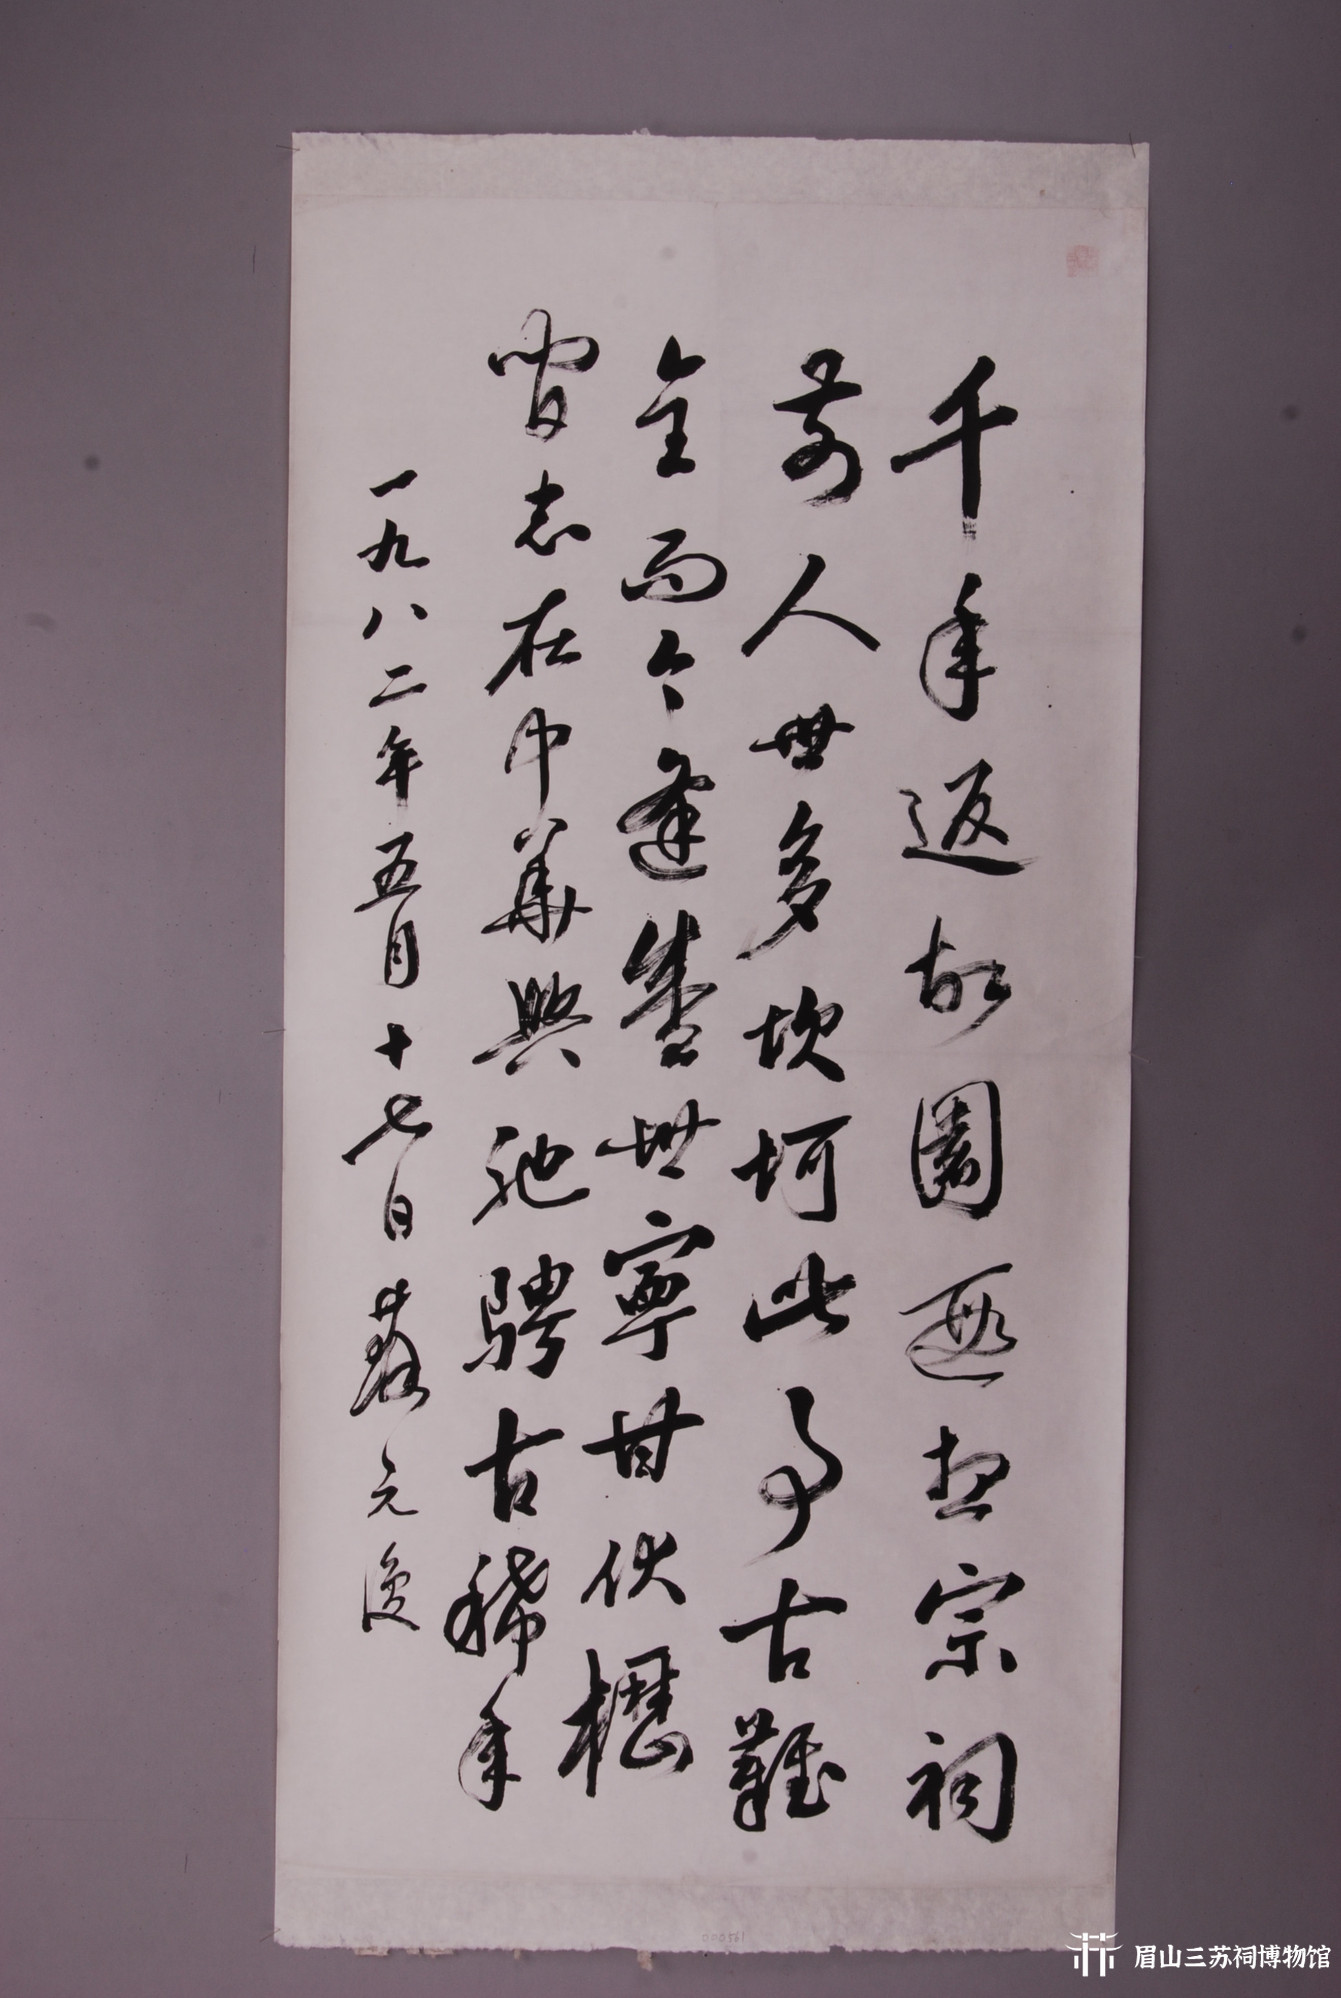 千年返故園遐想宗祠
前人世多坎坷此事古難
全而今逢盛世寧甘伏櫪
間志在中華興馳騁古稀年
一九八二年五月十七日蘇元復
000561
眉山三苏祠博物馆